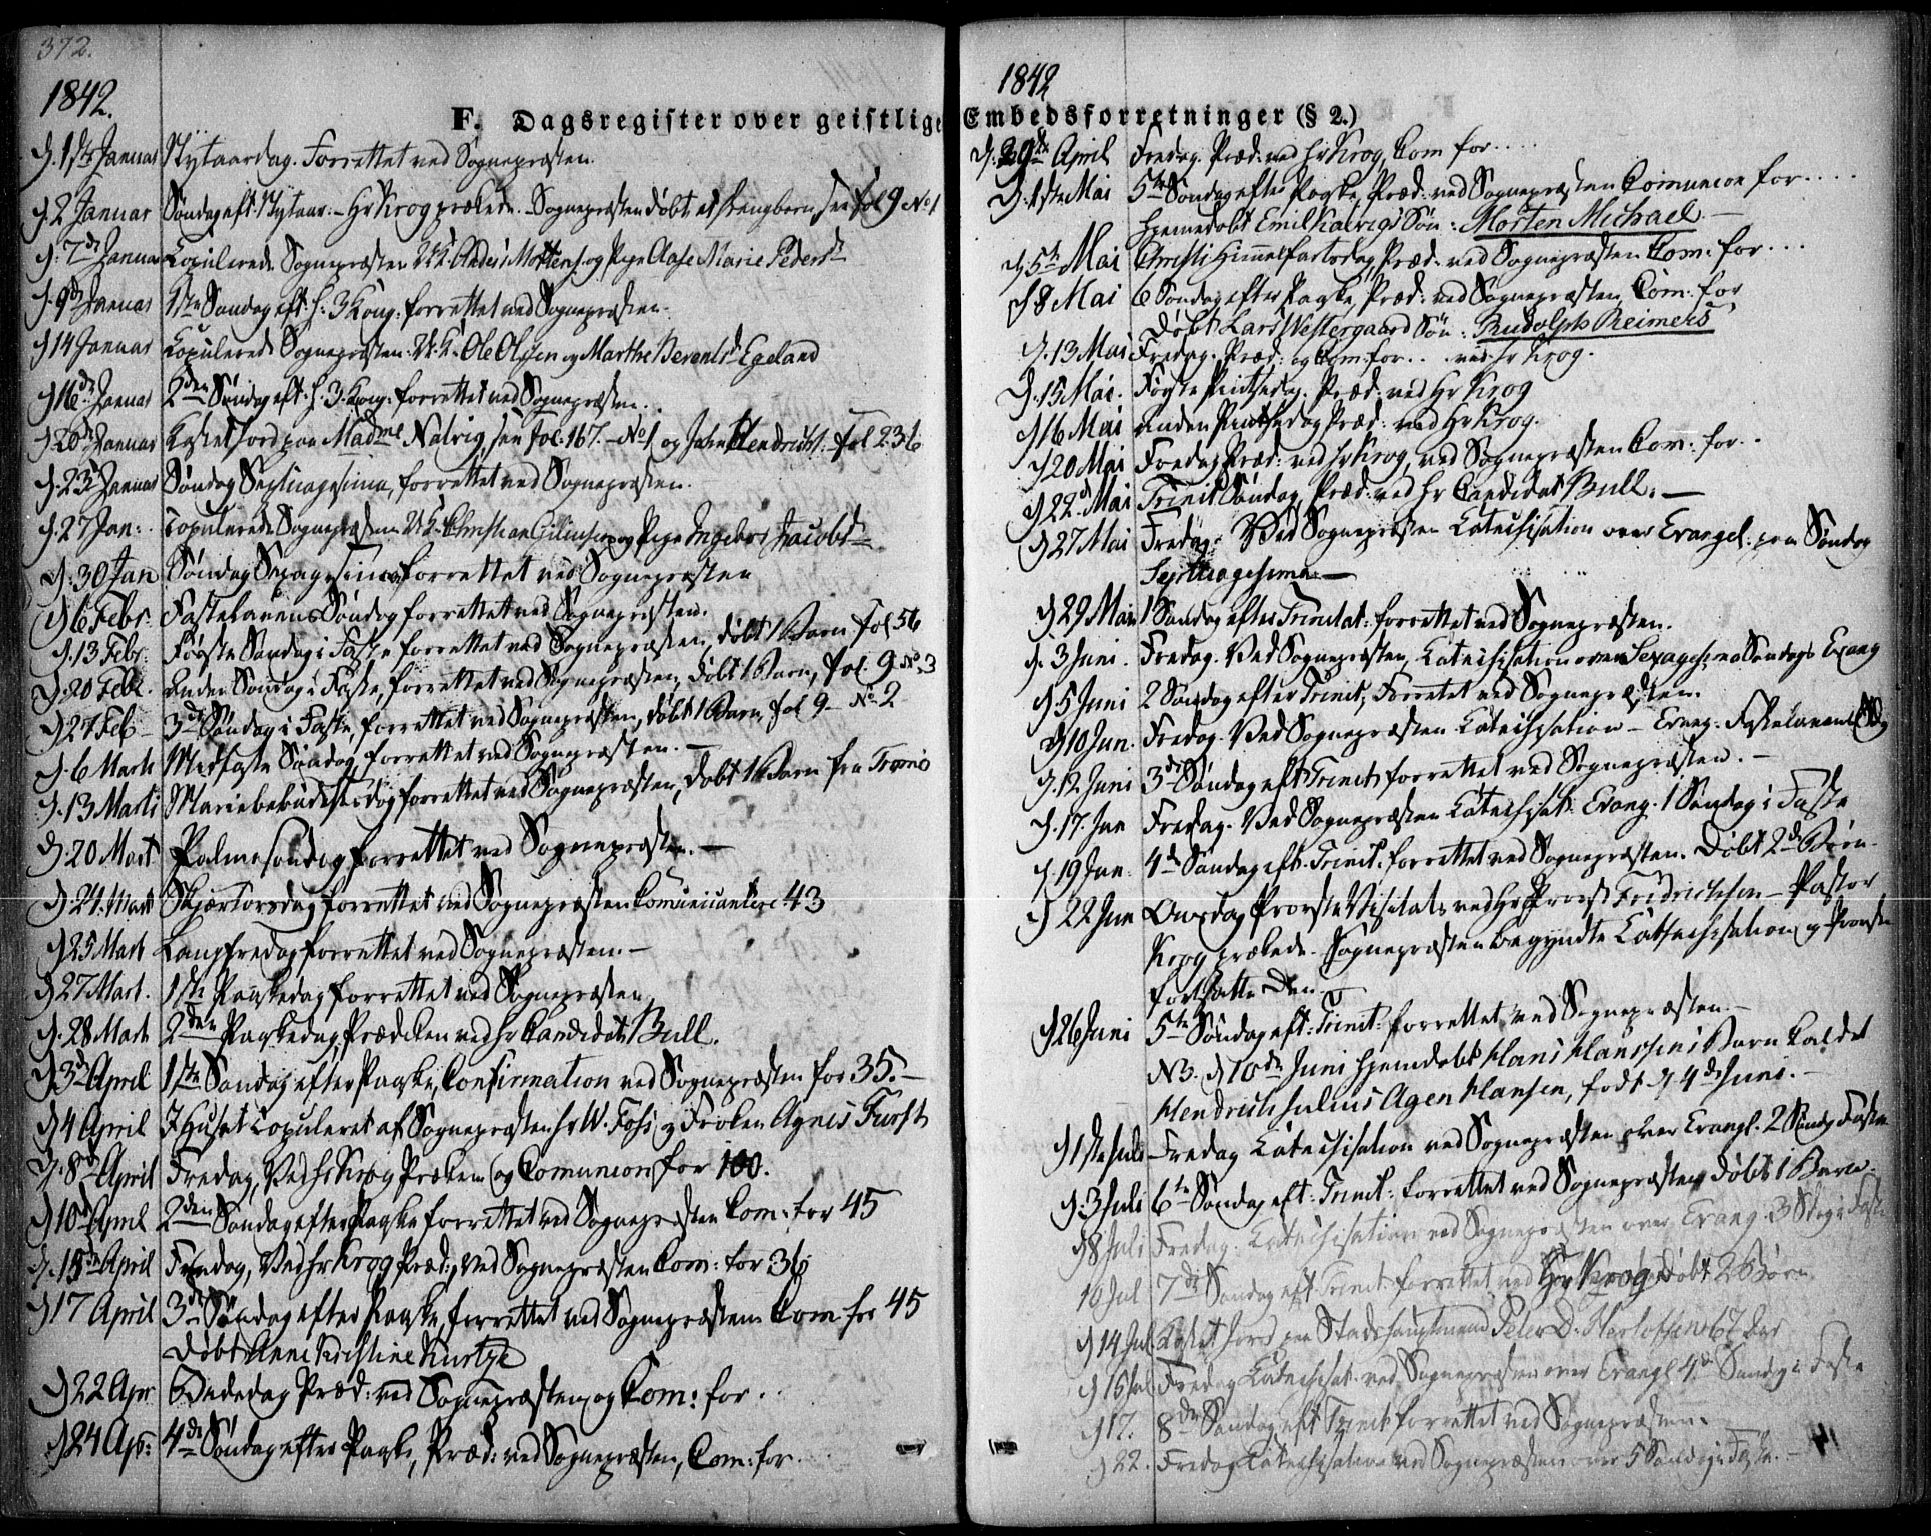 372.
1842.
F. Dagsregister over geistlige
D. 1ste Januar Nytaarsdag. Forrettet ved Sognepræsten.
D. 2 Januar Søndag eft. Nytaar. Hr Krog prækede. Sognepræsten døbt et see fol 9 No 1
D. 7de Januar Copulerede Sognepræsten Anders Mortens. og Pige Aase Marie Pedersd.
D. 9de Januar 1ste Søndag eft. H. 3 Kong: forrettet ved Sognepræsten.
D. 14 Januar Copulerede Sognepræsten Ole Olsen og Marthe Berentsd. Egeland
D. 16de Januar 2den Søndag eft. H. 3 Kong: forrettet ved Sognepræsten.
D. 20de Januar Kastet Jord paa Madme Nalvig, see fol. 167. No 1 og John Hendrichs. fol 236
D. 23de Januar Søndag Septuagesima, forrettet ved Sognepræsten.
D. 27 Jan: Copulerede Sognepræsten Christian og Pige Ingebor Jacobsd.
D. 30 Jan Søndag Sexagesima forrettet ved Sognepræsten
D. 6 Febr: Fastelavens Søndag forrettet ved Sognepræsten.
D. 13 Febr: Første Søndag i Faste forrettet ved Sognepræsten, døbt 1 Barn fol 56
D. 20 Febr. Anden Søndag i Faste, forrettet ved Sognepræsten, døbt 1 Barn, fol. 9 No 3
D. 27 Feb 3de Søndag i Faste, forrettet ved Sognepræsten, døbt 1 Barn, fol 9 No 2
D. 6 Marti Midfaste Søndag forrettet ved Sognepræsten.
D. 13 Marti Mariebebudelsesdag forrettet ved Sognepræsten, døbt 1 Barn fra Tromø
D. 20 Mart Palmesøndag forrettet ved Sognepræsten.
D. 24. Mart Skjærtorsdag forrettet ved Sognepræsten Comunicantere 43
D. 25 Mart Langfredag forrettet ved Sognepræsten.
D. 27 Mart. 1ste Paaskedag forrettet ved Sognepræsten
D. 28 Mart 2den Paaskedag Prædiken ved Hr Candidat Bull.
D. 3de April 1ste Søndag efter Paaske, Confirmation ved Sognepræsten for 35.
D. 4 April I Huset Copuleret af Sognepræsten Hr W. Foss og Frøken Agnes Furst
D. 8de April Fredag, Ved Hr Krog Præken og Comunion for 100.
D. 10de April 2den Søndag efter Paaske forrettet ved Sognepræsten Com: for 45
D. 15de April Fredag, Ved Hr Krog Præd:, ved Sognepræsten Com: for 36
D. 17 April 3de Søndag efter Paaske, forrettet ved Sognepræsten Com for 45
Døbt Anne Kristine Kurtze
D. 22 Apr Bededag Præd: ved Sognepræsten og Com: for .
D. 24 Ap: 4de Søndag efter Paaske, Præd: ved Sognepræsten, Com: for .
1842
Embedsforretninger (§ 2.)
D. 29de April Fredag. Præd: ved Hr Krog, Com for . . . .
D. 1ste Mai 5te Søndag efter Paaske, Præd: ved Sognepræsten Comunion for . . . .
Hjemedøbt Emil Kalvigs Søn: Morten Michael
D. 5te Mai Christi Himmelfartsdag, Præd: ved Sognepræsten Com: for . . .
D. 8 Mai 6 Søndag efter Paaske, Præd: ved Sognepræsten, Com: for
Døbt Lars Westergaard Søn: Rudolph Reimers
D. 13 Mai Fredag. Præd: og Com: for . . ved Hr Krog.
D. 15 Mai. Første Pintsedag. Præd: ved Hr Krog
D. 16 Mai Anden Pintsedag Præd: ved Hr Krog.
D. 20 Mai Fredag Præd: ved Hr Krog, ved Sognepræsten Com: for . .
D. 22de Mai Trinit. Søndag, Præd: ved Hr Candidat Bull.
D. 27 Mai Fredag. Ved Sognepræsten Catechisation over Evangel: paa Søndag
Septuagesima
D. 29 Mai 1 Søndag efter Trinitat: forrettet ved Sognepræsten.
D. 3 Juni. Fredag. Ved Sognepræsten, Catechisation over Sexagesima Søndags Evang
D. 5 Juni 2 Søndag efter Trinit, Forrettet ved Sognepræsten.
D. 10 Jun. Fredag. Ved Sognepræsten Catechisation Evang. Fastelavens
D. 12 Juni 3de Søndag eft. Trinit, forrettet ved Sognepræsten.
D. 17. Jun Fredag. Ved Sognepræsten Catechisat: Evang. 1 Søndag i Faste
D. 19 Jun 4de Søndag eft. Trinit. forrettet ved Sognepræsten. Døbt 2de Børn
D. 22 Jun Onsdag Provste Visitats ved Hr Provst Fredrichsen Pastor
Krog prækede. Sognepræsten begyndte Catechisation og Provsten
fortsatte den.
D. 26 Juni 5te Søndag eft: Trinit: forrettet ved Sognepræsten.
NB. D. 10de Juni hjemdøbt Hans Hanssens Barn kaldet
Hendrich Julius Agen Hansen, født D. 4de Juni.
D. 1ste Juli Fredag Catechisation ved Sognepræsten over Evangl. 2 Søndg Faste
D. 3 Juli 6te Søndag eft: Trinit: forrettet ved Sognepræsten døbt 1 Barn
D. 8 Juli Fredag. Catechisation ved Sognepræsten over Evang. 3 Sdg i Faste
10 Jul 7de Søndag eft Trinit. forrettet ved Hr Krog døbt 2 Børn
D. 14 Jul Kastet Jord paa Stadshauptmand Peter D. Herlofsen
D. 15 Jul Fredag Catechisat. ved Sognepræsten over Evangl 4de Søndag i Faste
D. 17. 8de Søndag eft Trinit forrettet ved Sognepræsten.
D. 22. Fredag Catechisation ved Sognepræsten over 5 Søndag i Faste.